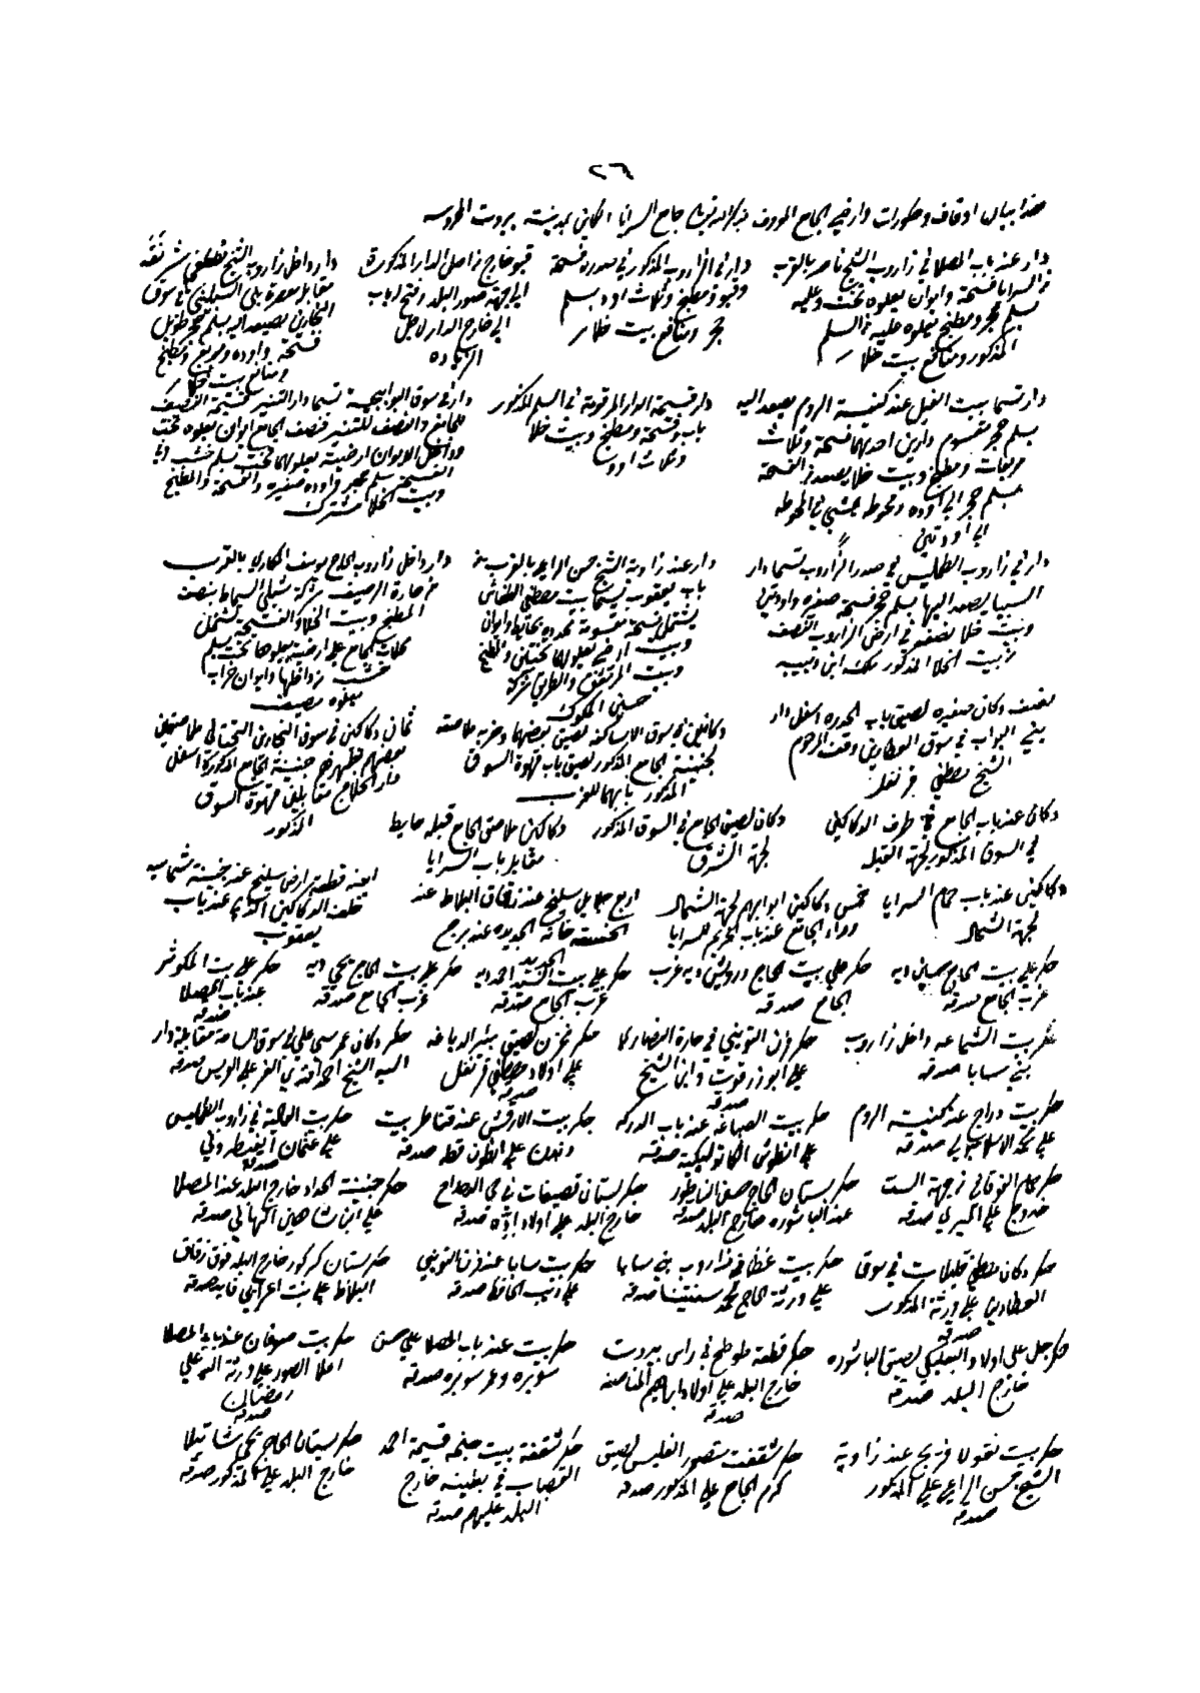 ٢٦
هذا بيان اوقاف وحكورات واراضي الجامع المعروف بجامع السرايا الكائن بمدينة بيروت المحروسه
دار عند باب المصلا في زاروب الشيخ ناصر بالقرب
من السرايا فسحة وايوان يعلوه تخت وعليه
سلم حجر ومطبخ يعلوه عليه السلم
المذكور ومنافع بيت خلا
دار في الزاروب المذكور في صدره فسحة
وقبو ومطبخ وثلاث اوده بسلم
حجر ومنافع بيت خلا
قبو خارج من اصل الدار المذكورة
الى جهة صور البلد وفتح له باب
الى خارج الدار لاجل
الزياده
دار داخل زاروب الشيخ
مقابل معصرة بني السبليني في سوق
النجارين يصعد اليه بسلم حجر طويل
فسحة واوده ومربع ومطبخ
ومنافع بيت الخلا
دار تسما بيت الفيل عند كنيسة الروم يصعد اليه
بسلم حجر مقسوم دارين احديهما فسحة وثلاث
مربعات ومطبخ وبيت خلا يصعد من الفسحة
بسلم حجر الى اوده ومحوطه يمشي في المحوطه
الى اودتين
دار قسيمة الدار المرقومة في السلم المذكور
باب وفسحة ومطبخ وبيت خلا
وثلاث اود
دار في سوق البوابجية تسما دار التنير
للجامع والنصف للتنير فنصف الجامع ايوان يعلوه تخت
وداخل الايوان ارضية يعلوهما تخت بسلم خشب
الفسحة سلم حجر واوده صغيره والفسحة والمطبخ
وبيت الخلا مشترك
دار في زاروب الطمليس في صدر الزاروب تسما دار
السبيا يصعد اليها بسلم حجر فسحة صغيره واودتين
وبيت خلا نصفه في ارض الزاروب النصف
من بيت الخلا المذكور ملك ابن دبيبه
دار عند زاوية الشيخ حسن الراعي بالقرب من
باب يعقوب تسما بيت مصطفى الطفاش
يشتمل فسحة مقسومة محدده بحايط وايوان
وبيت ارضي يعلوهما تختاني والمطبخ
وبيت المرتفق والطريق شركة
حسني المكوك
دار داخل زاروب الحاج يوسف الحكاري بالقرب
من حارة الرصيف شركة شبلي السماط بنصف
المطبخ وبيت الخلا والفسحة يشتمل
مكان الجامع على ارضية يعلوها تخت بسلم
خشب من داخلها وايوان خراب
يعلوه مصيف
نصف دكان صغيره لصيق باب الحدره اسفل دار
بني البواب في سوق العطارين وقف المرحوم
الشيخ مصطفى قرنفل
دكانين في سوق الاساكفه لصيق بعضهما وخربه ملاصقة
لجنينة الجامع المذكور لصيق باب قهوة السوق
المذكور بابهما للغرب
ثمان دكاكين في سوق النجارين التحتاني ملاصقين
بعضهم ظهرهم جنينة الجامع المذكورة اسفل
دار الحلاج مقابلين قهوة السوق
المذكور
دكان عند باب الجامع في طرف الدكاكين
في السوق المذكور لجهة القبله
دكان لصيق الجامع في السوق المذكور
لجهة الشرق
دكاكين ملاصق الجامع قبله حايط
مقابل باب السرايا
دكاكين عند باب حمام السرايا
لجهة الشمال
خمس دكاكين ابوابهم لجهة الشمال
وراء الجامع عند باب الحريم للسرايا
اربع جلالي سليخ عند زقاق البلاط عند
الخسته خانه الجديده عند برج
الجديد
ايضه قطعة ارض سليخ عند جنينة شماسيه
خلف الدكاكين الذي عند باب
يعقوب
حكر على بيت الحاج
غرب الجامع صدقه
حكر على بيت الحاج درويش ديه غرب
الجامع صدقه
حكر على بيت السيد احمد ديه
غرب الجامع صدقه
حكر على بيت الحاج يحي ديه
غرب الجامع صدقه
حكر على بيت المكوشر
عند باب المصلا
صدقه
حكر بيت الشماعه داخل زاروب
بني سابا صدقه
حكر فرن التويني في حارة النصارى
على ابو زرقوت وابن الشيخ
صدقه
حكر مخزن لصيق بئر الدباغه
على اولاد مصطفى قرنفل
صدقه
حكر دكان عمر سي علي في سوق الساحة مقابلة دار
السيد الشيخ احمد افندي الغر على الريس صدقه
حكر بيت دراج عند كنيسة الروم
على محمد الاسلامبولي صدقه
حكر بيت الصباغه عند باب الدركه
على انطوش الكاتوليكية صدقه
حكر بيت الارقش عند قناطر بيت
على انطون قطه صدقه
حكر بيت الحاكمة في زاروب الطمليس
على عثمان
صدقه
حكر حمام الفوقاني من جهة الست
خدوج على الكبري صدقه
حكر بستان الحاج حسن الناطور
عند الباشوره خارج البلد صدقه
حكر بستان قصيفات في
خارج البلد على اولاد ادّه صدقه
حكر جنينة الحداد خارج البلد عند المصلا
على ابن شاهين الكهاني صدقه
حكر دكان مصطفى قليلات في سوق
العطارين على ورثة المذكور
صدقه
حكر بيت غطا في زاروب بني سابا
على ورثة الحاج محمد سنتينا صدقه
حكر بيت سابا عند فرن التويني
على ديب الحافظ صدقه
حكر بستان كركور خارج البلد فوق زقاق
البلاط على بنت اعرابي فايد صدقه
حكر جل على اولاد البعلبكي لصيق الباشوره
خارج البلد صدقه
حكر قطعة طوطح في راس بيروت
خارج البلد على اولاد ابراهيم المناصفه
صدقه
حكر بيت عند باب المصلا على حسن
سوبره وعمر سوبره صدقه
حكر بيت صوفان عند باب المصلا
اعلا الصور على ورثة
رمضان
صدقه
حكر بيت نقولا فريج عند زاوية
الشيخ حسن الراعي على المذكور
صدقه
حكر شقفت منصور الفليس لصيق
كرم الحاج على المذكور صدقه
حكر شقفة بيت جمعه قسيمة احمد
القصاب في بطينه خارج
البلد عليهم صدقه
حكر بستان الحاج يحي شاتيلا
خارج البلد على المذكور صدقه